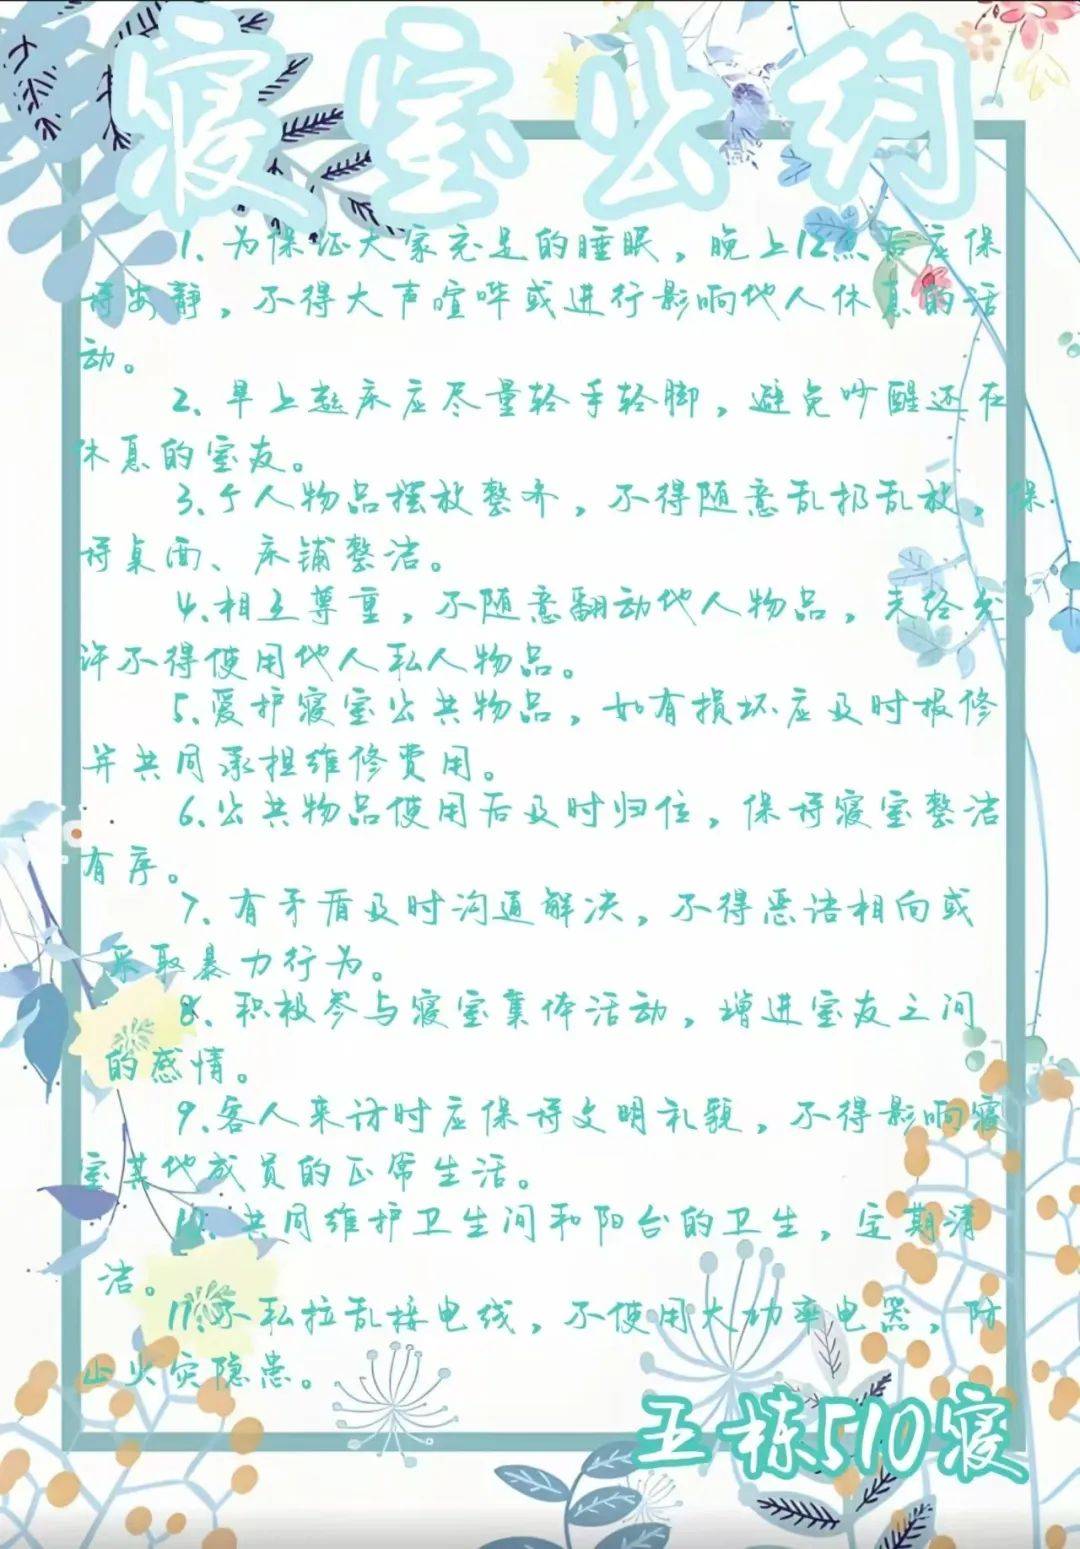 寝室公约
1、为保证大家充足的睡眠，晚上12点后应保
持安静，不得大声喧哗或进行影响他人休息的活
动。
2、早上起床应尽量轻手轻脚，避免吵醒还在
休息的室友。
3、个人物品摆放整齐，不得随意乱扔乱放，保
持桌面、床铺整洁。
4、相互尊重，不随意翻动他人物品，未经允
许不得使用他人私人物品。
5、爱护寝室公共物品，如有损坏应及时报修
并共同承担维修费用。
6、公共物品使用后及时归位，保持寝室整洁
有序。
7、有矛盾及时沟通解决，不得恶语相向或
采取暴力行为。
8、积极参与寝室集体活动，增进室友之间
的感情。
9、客人来访时应保持文明礼貌，不得影响寝
室其他成员的正常生活。
10、共同维护卫生间和阳台的卫生，定期清
洁。
11、不私拉乱接电线，不使用大功率电器，防
止火灾隐患。
五栋510寝